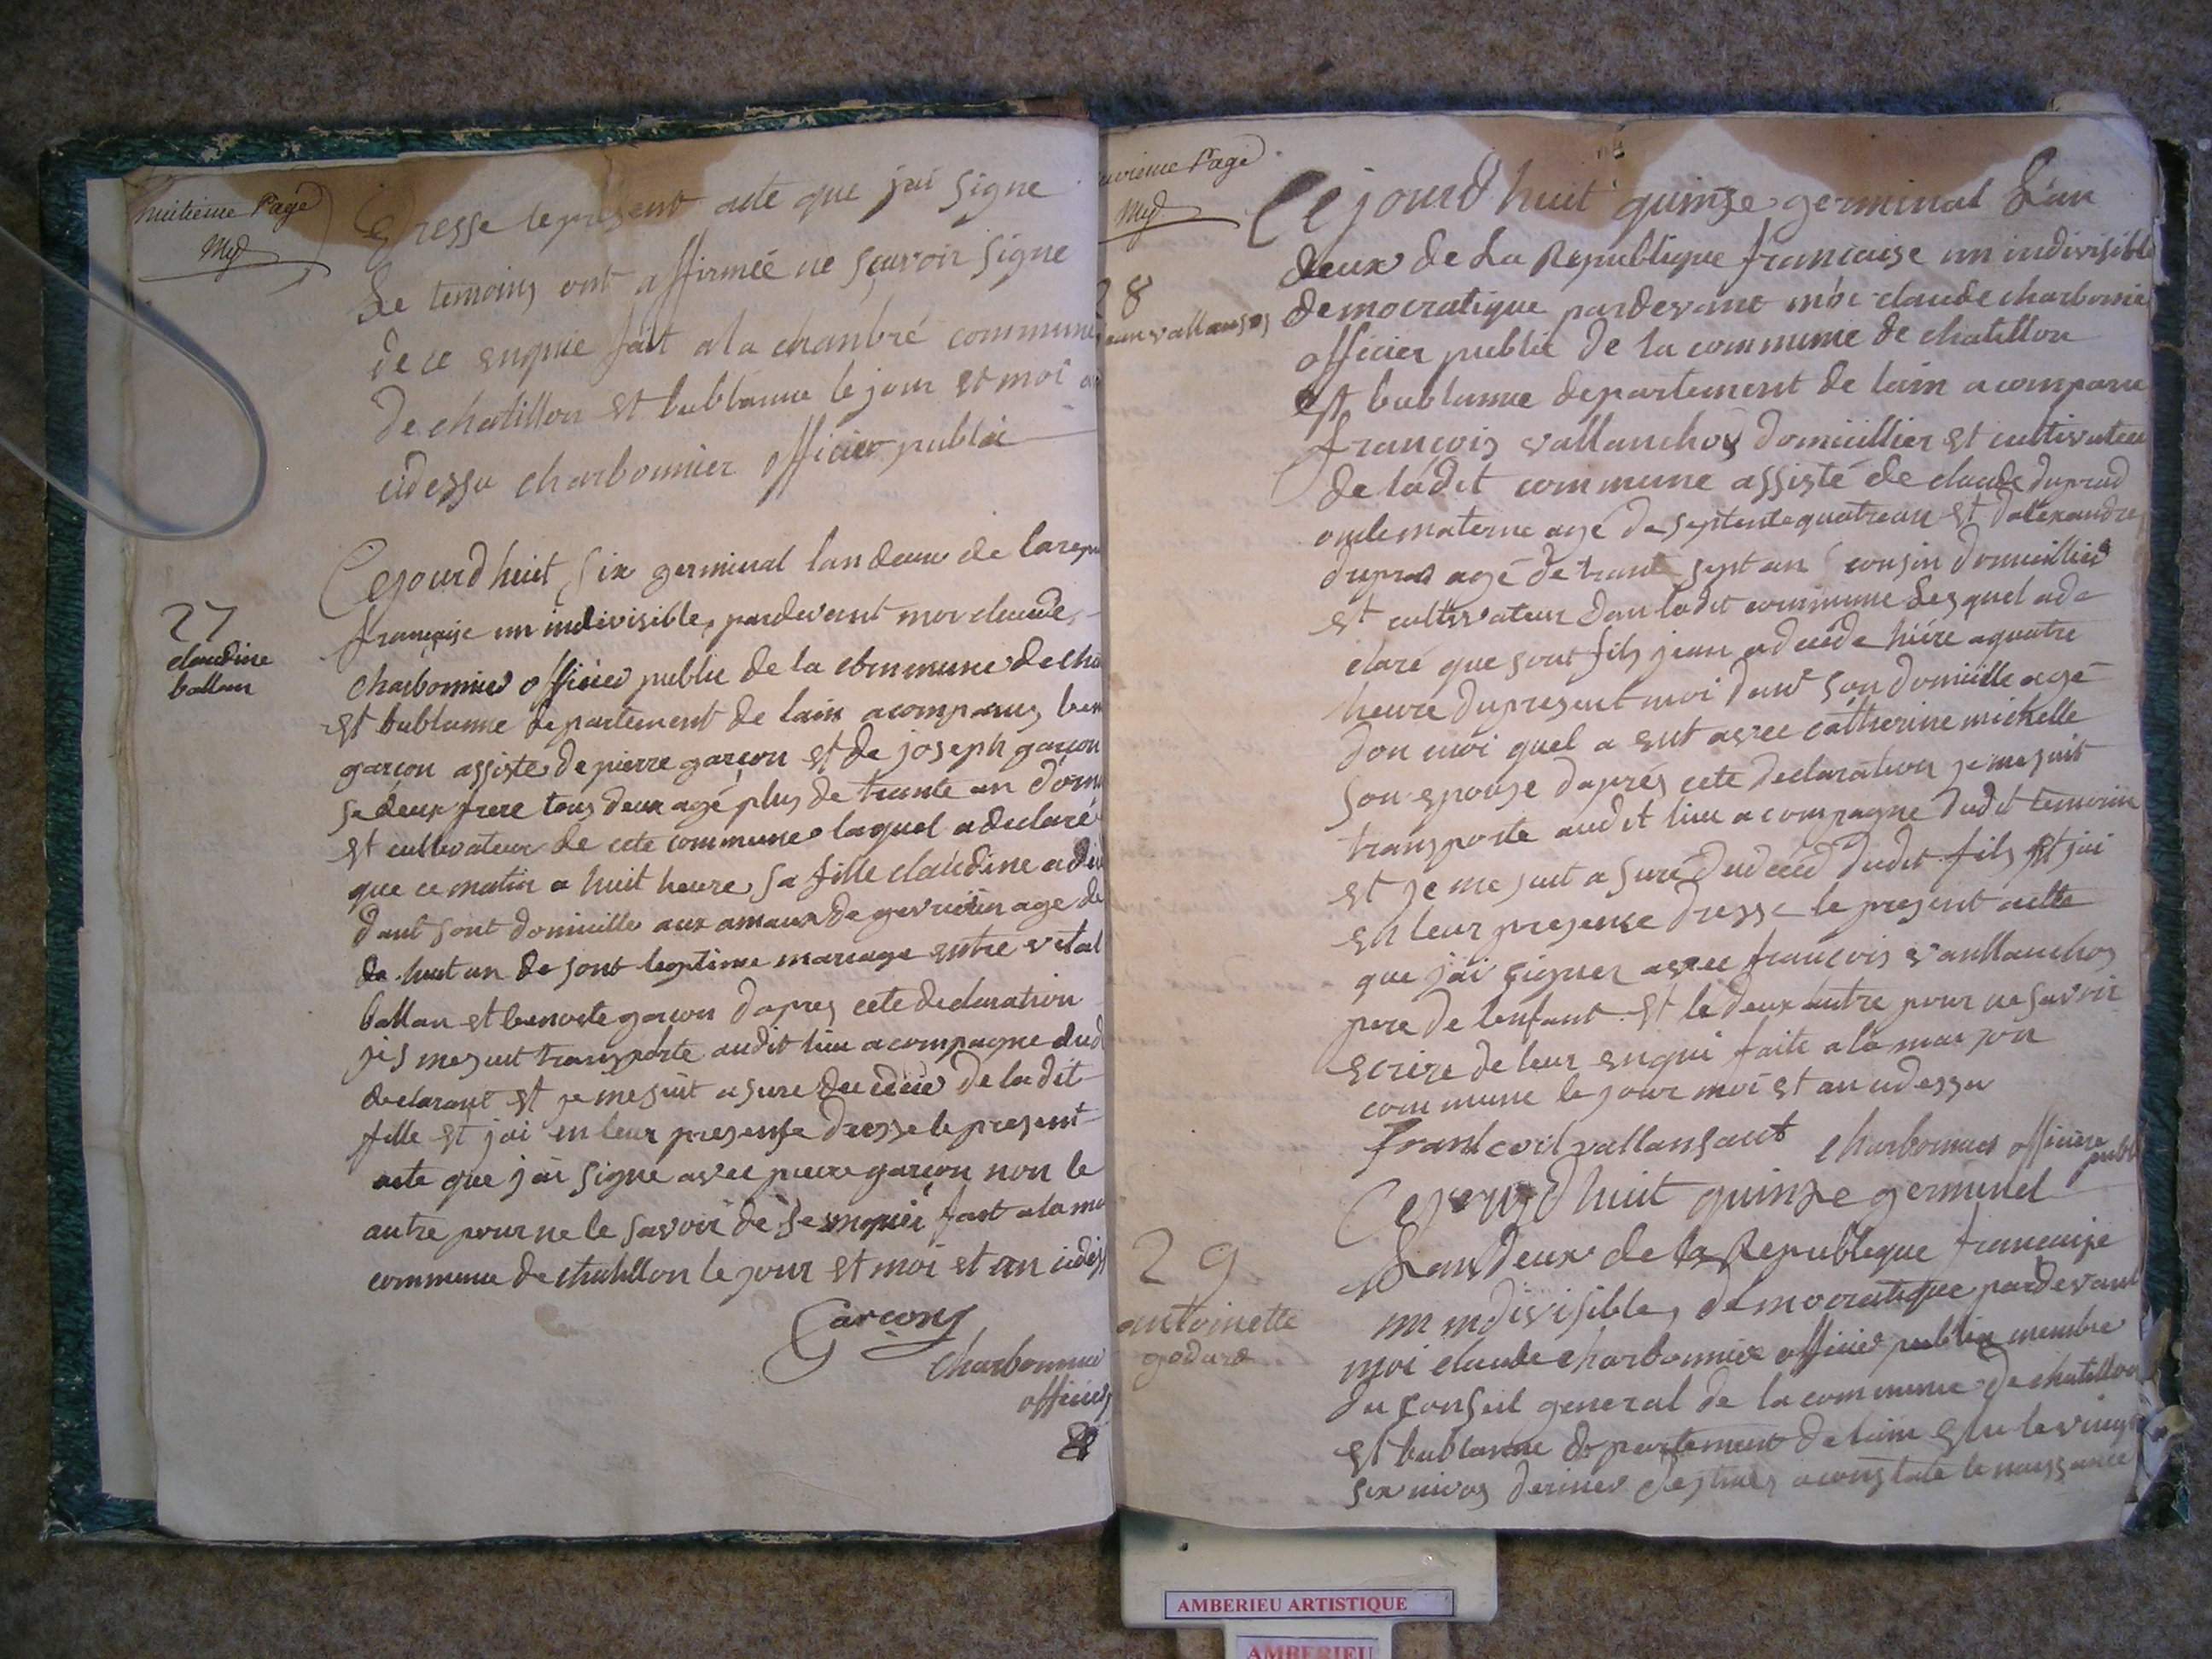 huitieme Page
Dresse le present acte que jai signe
Le temoins ont affirmée ne sçavoir signe
de ce enquie fait a la chanbré commune
De chatillon et bublanne le jour et moi
cidessu charbonnier officier public
27
claudine
ballan
Cejourdhuit six germinal lan deux de la repu
française un indivisible pardevant moi claude
charbonnier officier public de la commune de cha
et bublanne departement de lain acomparus ben
garçon assiste de pierre garçon et de joseph garçon
se deux frere tous deux agé plus de trante an dom
et cultivateur de cete commune laquel a declaré
que ce matin a huit heure sa fille claudine a de
dant sont domicille aux amaux de age de
de huit an de sont legitime mariage entre vital
ballan et benoite garçon dapres cete declaration
je mesuit transporte audit lieu acompagne dud
declarant et je mesuit asure du de ladit
fille et jai en leur presense dresse le present
acte que jai signe avec pierre garçon non le
autre pour ne le savoir de se enquie fait a la ma
commune de chatillon le jour et moi et an cidess
Garcons
charbonnier
officier
uvieme Page
28
ean vallansos
Cejourdhuit quinze germinal Lan
deux de La Republique francaise un indivisible
democratique pardevant moi claude charbonnie
officier public de la commune de chatillon
et bublanne departement de lain a comparu
françois vallanchos domicillier et cultivateu
de ladit commune assisté de claude duprad
oncle materne agé de septente quatre an et dalexandre
dupras agé de trante sept an cousin domicillier
et cultivateur dan ladit commune Lesquel a de
claré que sont fils jean adecede hiére a quatre
heure du present moi dant son domicille agé
don moi quel a eut avec catherine michelle
son epouse daprés cete declaration je me suit
transporte audit lieu acompagne dudit temoin
et je me suit asuré du deced dudit fils et jai
en leur presense dresse le present acte
que jai signer avec françois vanllanchos
pere de lenfant et le deux autre pour ne savoir
ecrire de leur enqui faite a la maison
commune le jour moi et an cidessu
vallansaut charbonnier officiere
publi
Cejourdhuit quinze germinel
Lan deux de la Republique francaise
un indivisible democratique pardevant
29
antoinette
godard
moi claude charbonnier officier public membre
du conseil general de la commune de chatillon
et bublanne departement de lain le vingt
six nivos dernier a constate le naissance
AMBERIEU ARTISTIQUE
AMBERIEU